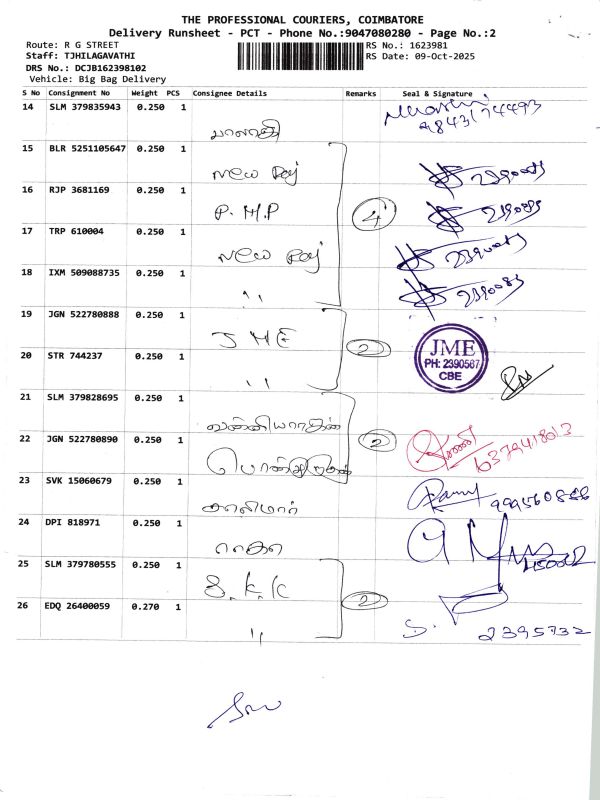 THE PROFESSIONAL COURIERS, COIMBATORE
Delivery Runsheet - PCT - Phone No.:9047080280 - Page No.:2
Route: R G STREET
Staff: TJHILAGAVATHI
DRS No.: DCJB162398102
Vehicle: Big Bag Delivery
RS No.: 1623981
RS Date: 09-Oct-2025
S No Consignment No Weight PCS Consignee Details Remarks Seal & Signature
14 SLM 379835943 0.250 1
9843174493
15 BLR 5251105647 0.250 1
New Raj
16 RJP 3681169 0.250 1
P.H.P 4
17 TRP 610004 0.250 1
New Raj
18 IXM 509088735 0.250 1
" 2390085
19 JGN 522780888 0.250 1
J M E 2
JME
PH: 2390567
CBE
20 STR 744237 0.250 1
"
21 SLM 379828695 0.250 1
2
22 JGN 522780890 0.250 1
6379418013
23 SVK 15060679 0.250 1
சாலிமார்
24 DPI 818971 0.250 1
25 SLM 379780555 0.250 1
S.K.K 2
26 EDQ 26400059 0.270 1
" S. 2395732